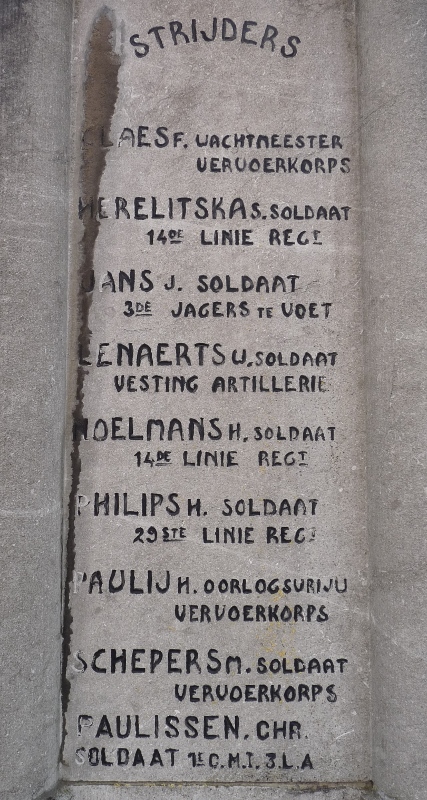 STRIJDERS
CLAES F. WACHTMEESTER
VERVOERKORPS
HERELITSKA S. SOLDAAT
14DE LINIE REGT
JANS J. SOLDAAT
3DE JAGERS TE VOET
LENAERTS W. SOLDAAT
VESTING ARTILLERIE
MOELMANS H. SOLDAAT
14DE LINIE REGT
PHILIPS H. SOLDAAT
29STE LINIE REGT
PAULIJ H. OORLOGSVRIJW
VERVOERKORPS
SCHEPERS M. SOLDAAT
VERVOERKORPS
PAULISSEN. CHR.
SOLDAAT 1E C.M.I. 3.L.A